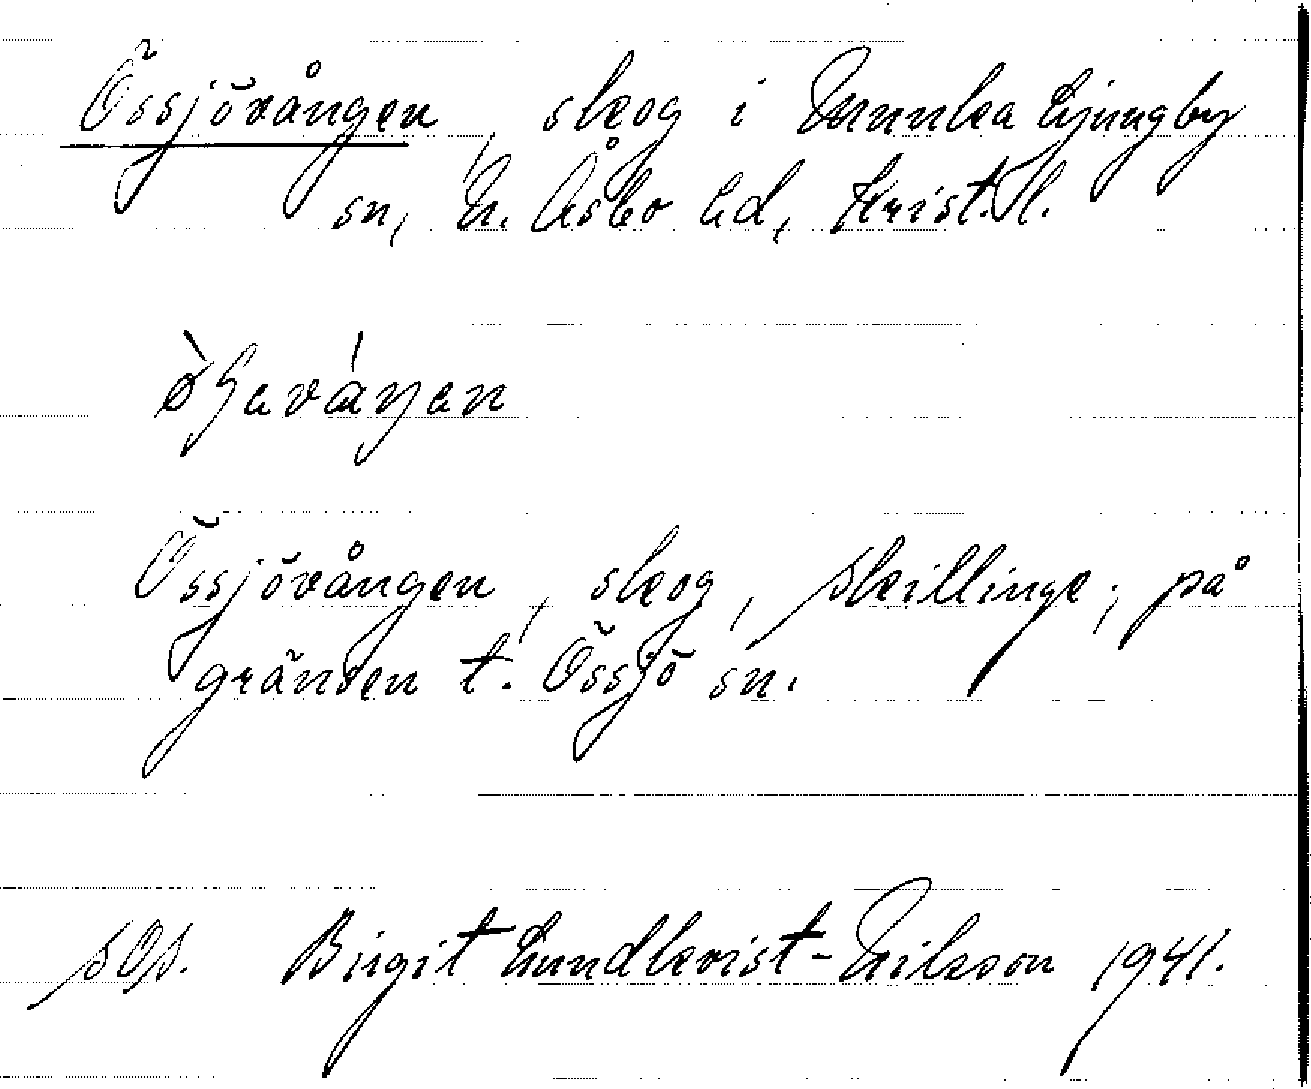 Össjövången, skog i Munka Ljungby
sn, N. Åsbo hd, Krist. l.
Össjövången, skog, Skillinge; på
gränsen t. Össjö sn.
SOS. Birgit Lundkvist-Nilsson 1941.